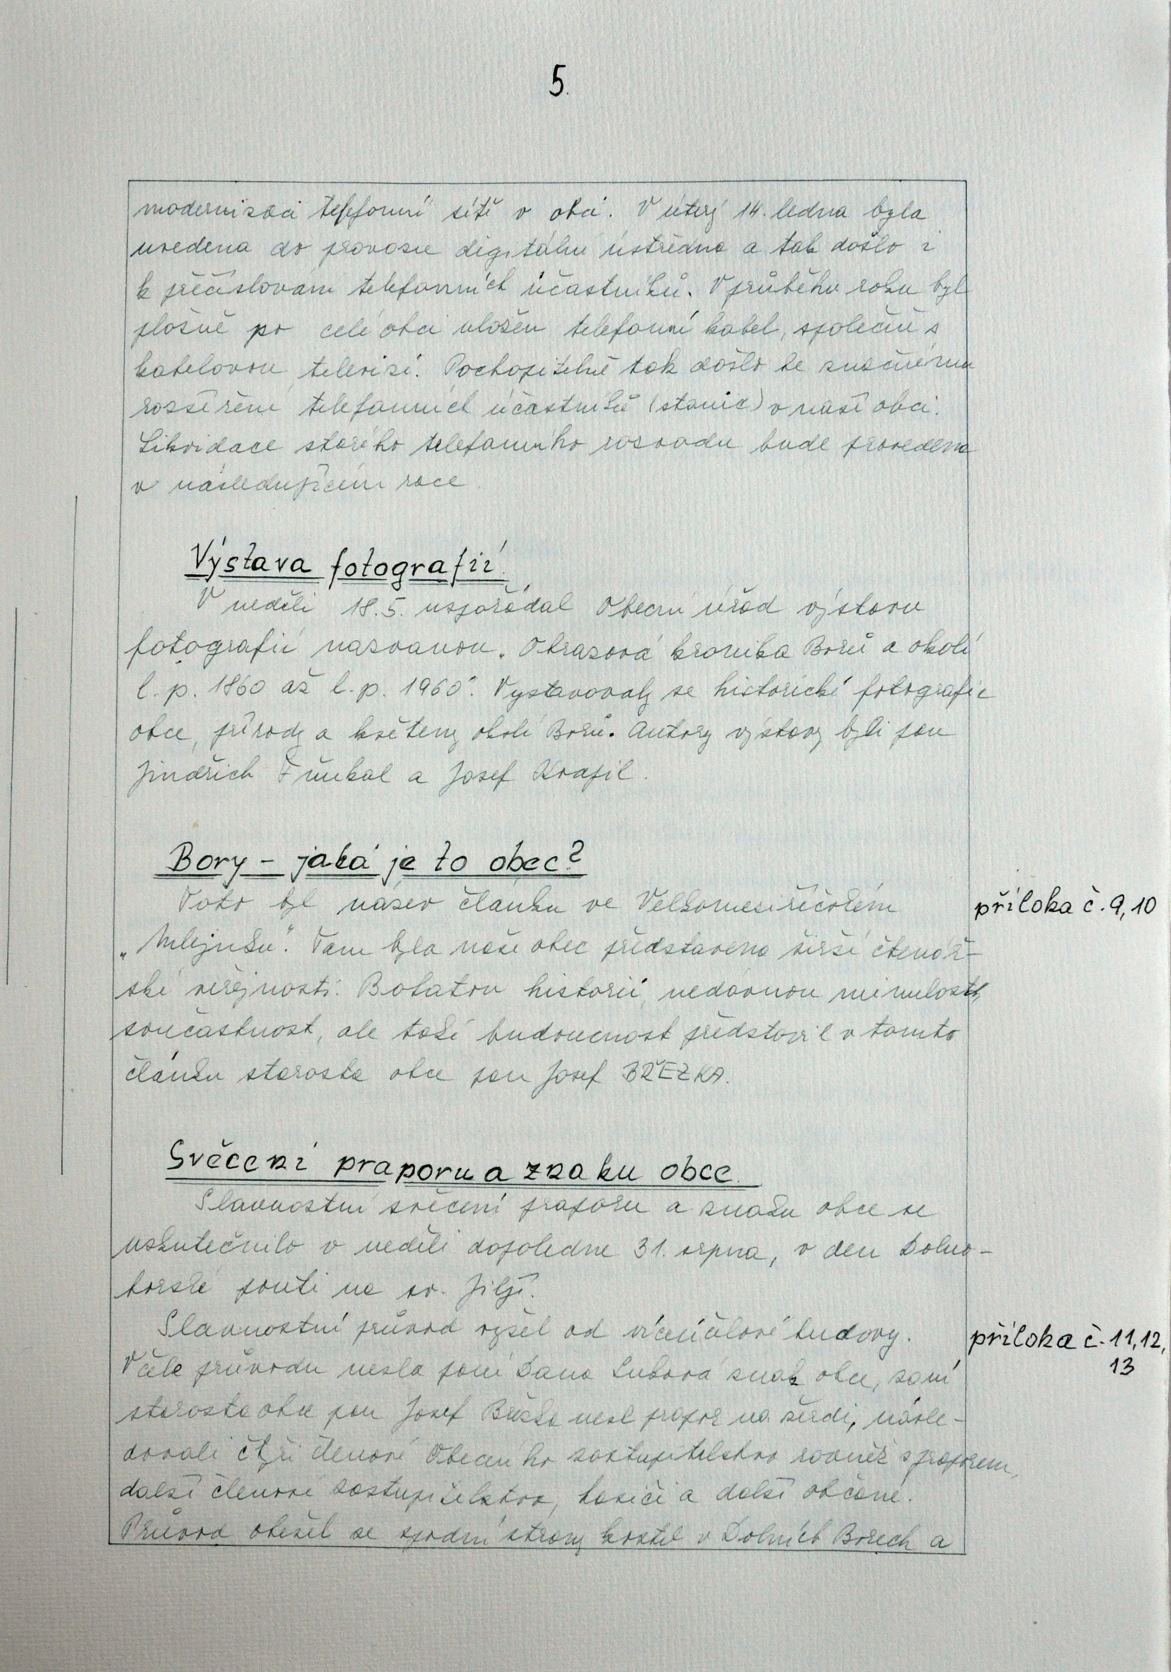 5.
modernizaci telefonní sítě v obci. V úterý 14. ledna byla
uvedena do provozu digitální ústředna a tak došlo i
k přečíslování telefonních účastníků. V průběhu roku byl
plošně po celé obci uložen telefonní kabel, společně s
kabelovou televizí. Pochopitelně tak došlo ke značnému
rozšíření telefonních účastníků (stanic) v naší obci.
Likvidace starého telefonního rozvodu bude provedena
v následujícím roce.
Výstava fotografií.
V neděli 18.5. uspořádal Obecní úřad výstavu
fotografií nazvanou. Obrazová kronika Borů a okolí
l.p. 1860 až l.p. 1960". Vystavovaly se historické fotografie
obce, přírody a květeny okolí Borů. Autory výstavy byli pan
Jindřich a Josef
Bory – jaká je to obec?
Toto byl název článku ve Velkomeziříčském příloha č. 9, 10
„ ". Tam byla naše obec představena širší čtenář-
ské veřejnosti. Bohatou historii, nedávnou minulost,
současnost, ale také budoucnost představil v tomto
článku starosta obce pan Josef BŘEZKA.
Svěcení praporu a znaku obce.
Slavnostní svěcení praporu a znaku obce se
uskutečnilo v neděli dopoledne 31. srpna, v den Dolno-
borské pouti na sv. Jiljí.
Slavnostní průvod vyšel od víceúčelové budovy. příloha č. 11, 12,
V čele průvodu nesla paní Dana znak obce, sami 13
starosta obce pan Josef Březka nesl prapor na žerdi, násle-
dovali čtyři členové Obecního zastupitelstva rovněž s praporem,
další členové zastupitelstva, hasiči a další občané.
Průvod obešel ze spodní strany kostel v Dolních Borech a